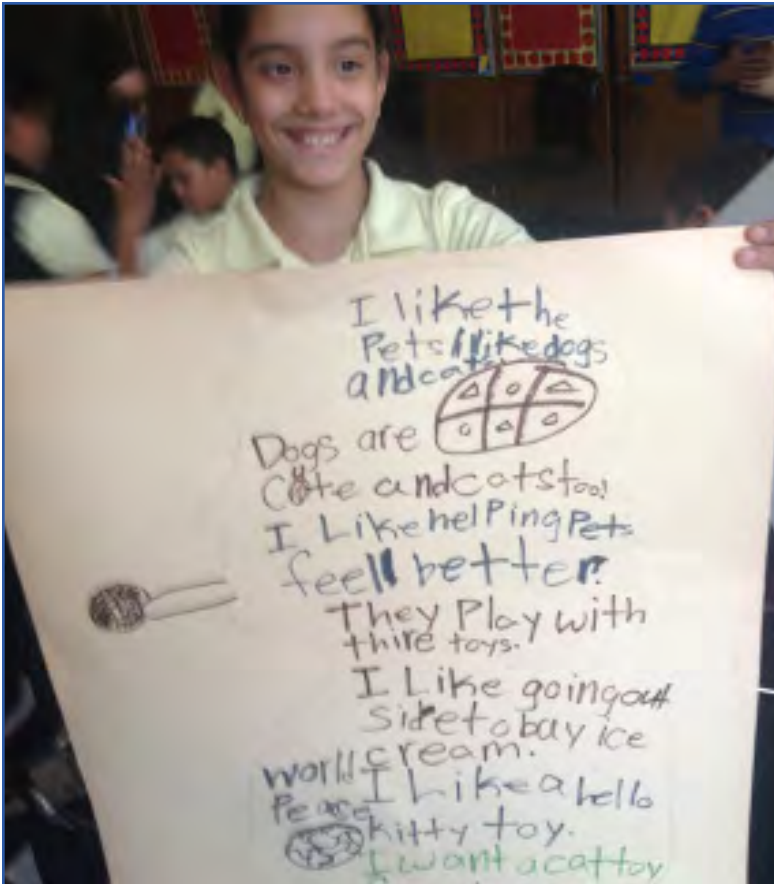 I like the
Pets I like dogs
and cats
Dogs are
Cute and cats too!
I Like helping Pets
feell better.
They Play with
thire toys.
I Like going out
side to buy ice
cream.
World
Peace
I Like a hello
kitty toy.
I want a cat toy